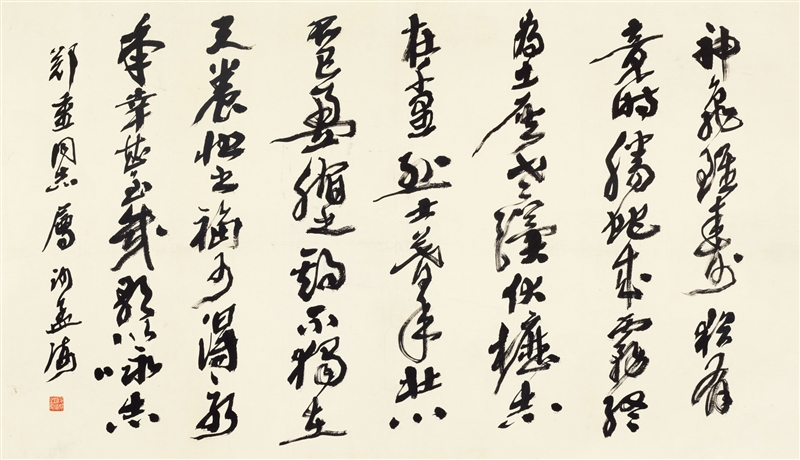 神龜雖壽猶有
竟時騰蛇成霧終
為土灰老驥伏櫪志
在千里烈士暮年壯心
不已盈縮之期不獨在
天養怡之福可得永
年幸甚至哉歌以詠志
鄭重同志屬 沙孟海